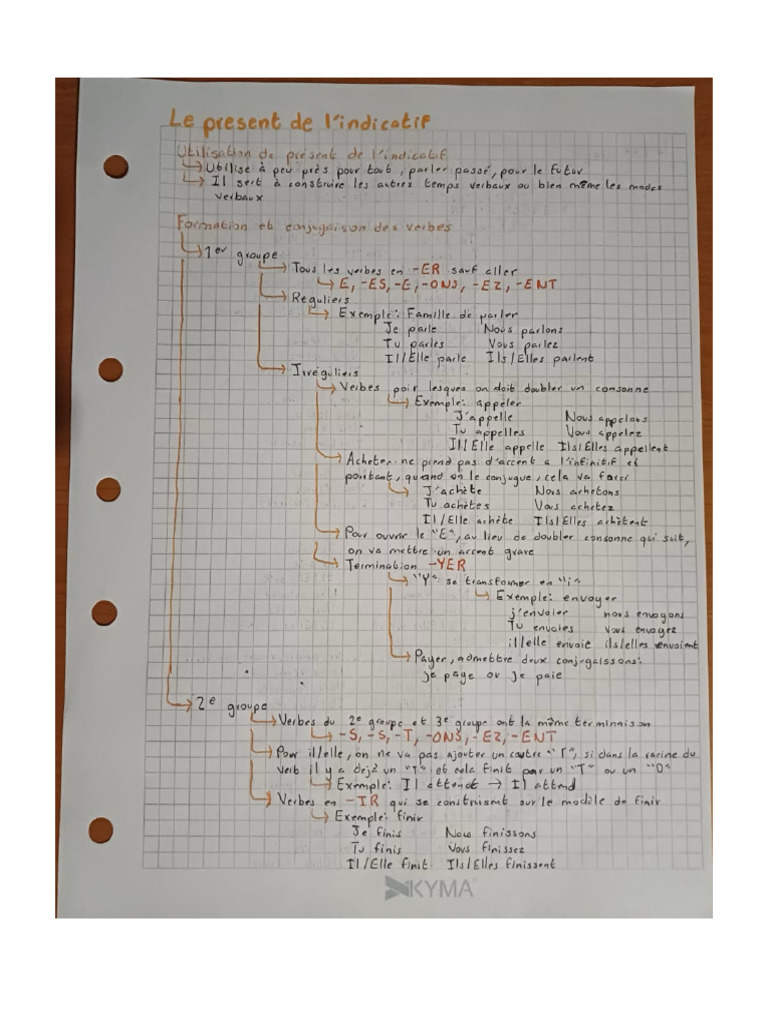 Le present de l'indicatif
Utilisation de présent de l'indicatif
Utilise à peu près pour tout, parler passé, pour le futur
Il sert à construire les autres temps verbaux ou bien même les modes
verbaux
Formation et conjugaison des verbes
1er groupe
Tous les verbes en -ER sauf aller
E, -ES, -E, -ONS, -EZ, -ENT
Reguliers
Exemple: Famille de parler
Je parle Nous parlons
Tu parles Vous parlez
Il/Elle parle Ils/Elles parlent
Irréguliers
Verbes poir lesques on doit doubler un consonne
Exemple: appeler
J'appelle Nous appelons
Tu appelles Vous appelez
Il/Elle appelle Ils/Elles appellent
Acheter ne prend pas d'accent a l'infinitif et
pourtant, quand on le conjugue, cela va
J'achète Nous achetons
Tu achètes Vous achetez
Il/Elle achète Ils/Elles achètent
Pour ouvrir le "E", au lieu de doubler consonne qui suit,
on va mettre un accent grave
Termination -YER
"Y" se transformer en "i"
Exemple: envoyer
j'envoier nous envoyons
Tu envoies vous envoyez
il/elle envoie ils/elles envoient
Payer, admettre deux conjugaissons:
je paye ou je paie
2e groupe
Verbes du 2e groupe et 3e groupe ont la même terminaison
-S, -S, -T, -ONS, -EZ, -ENT
Pour il/elle, on ne va pas ajouter un "T", si dans la racine du
verb il y a dejà un "T" et cela finit par un "T" ou un "D"
Exemple: Il attendt → Il attend
Verbes en -IR qui se construisent sur le modèle de finir
Exemple: finir
Je finis Nous finissons
Tu finis Vous finissez
Il/Elle finit Ils/Elles finissent
KYMA